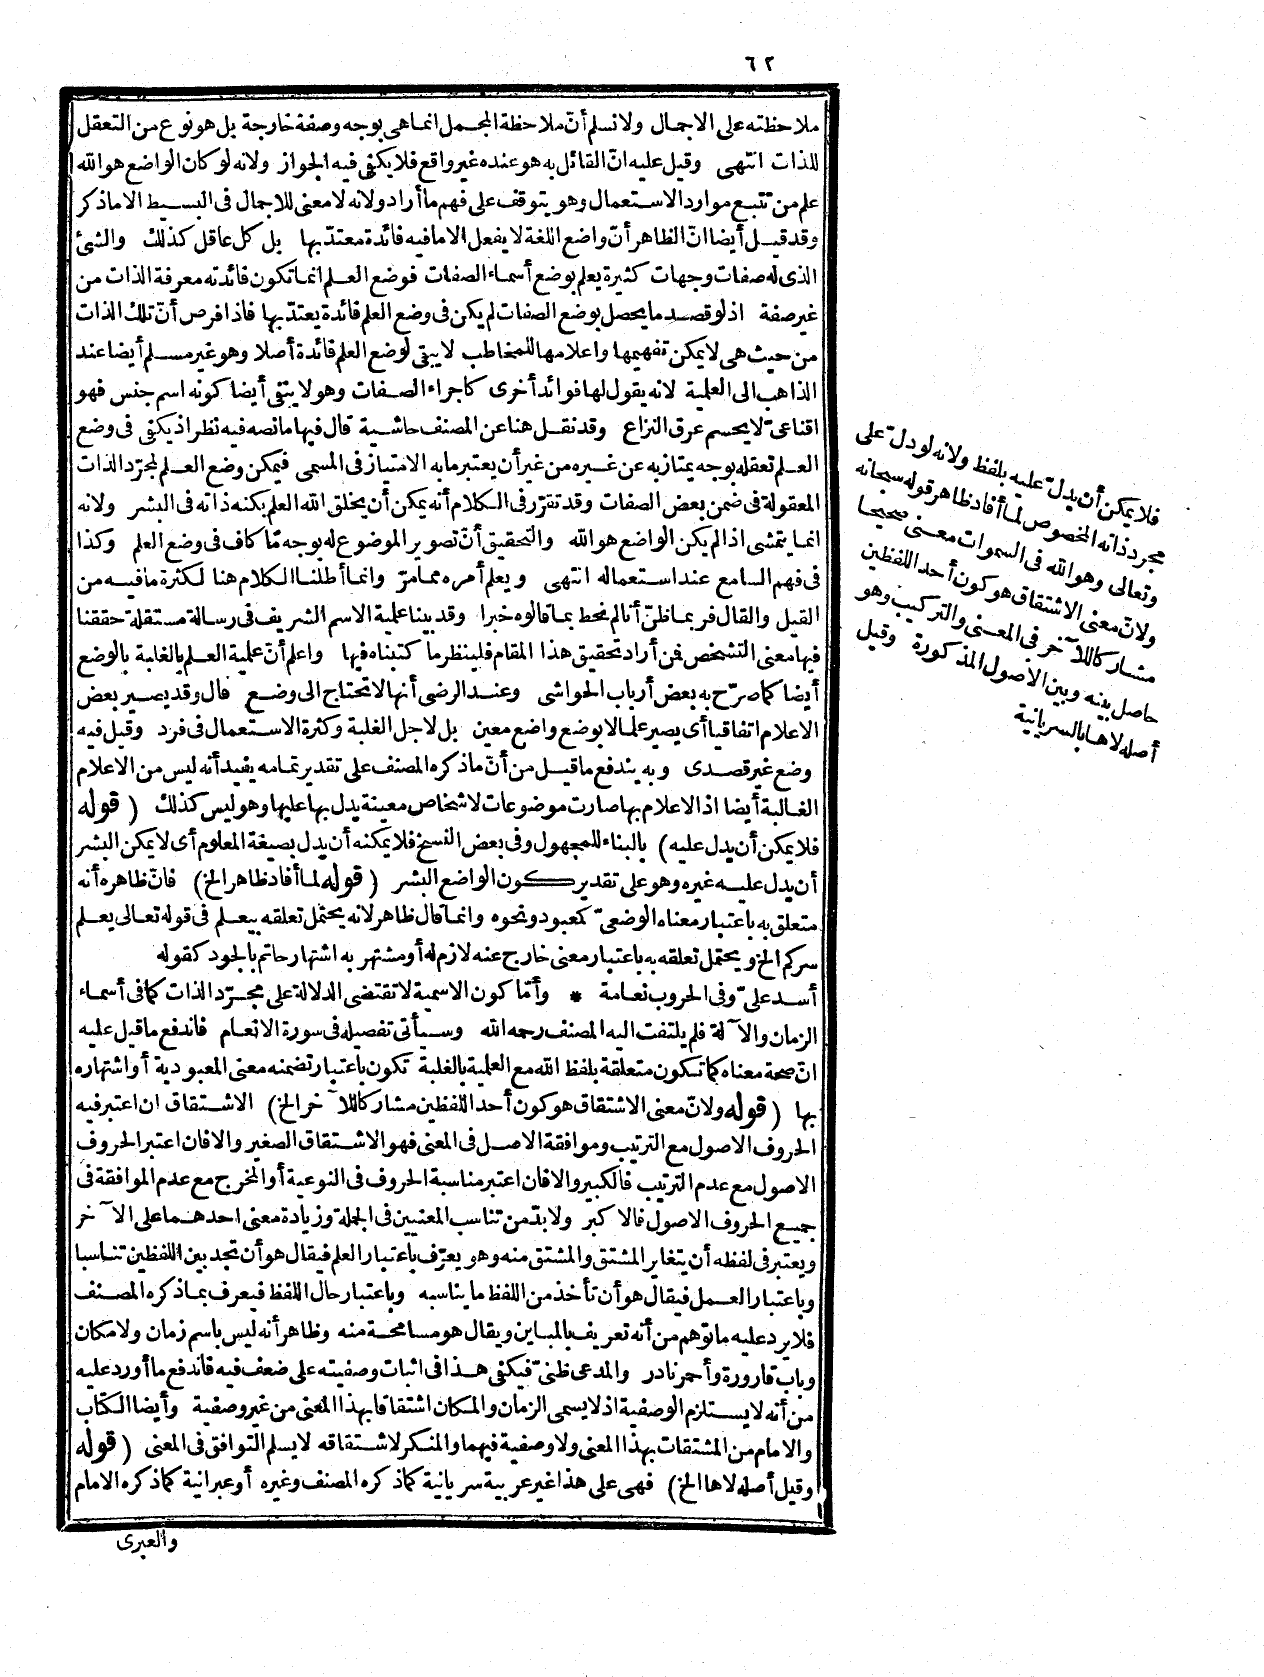 ٦٢
ملاحظته على الاجمال ولانسلم أنّ ملاحظة المجمل انما هى بوجه وصفة خارجة بل هو نوع من التعقل
للذات انتهى وقيل عليه انّ القائل به هو عنده غير واقع فلا يكفى فيه الجواز ولانه لو كان الواضع هو الله
علم من تتبع موارد الاستعمال وهو يتوقف على فهم ما أراد ولانه لامعنى للاجمال فى البسيط الاماذكر
وقد قيل أيضا انّ الظاهر أنّ واضع اللغة لا يفعل الامافيه فائدة معتدّ بها بل كل عاقل كذلك والشئ
الذى له صفات وجهات كثيرة يعلم بوضع أسماء الصفات فوضع العلم انما تكون فائدته معرفة الذات من
غير صفة اذ لو قصد ما يحصل بوضع الصفات لم يكن فى وضع العلم فائدة يعتدّ بها فاذا فرص أنّ تلك الذات
من حيث هى لا يمكن تفهيمها واعلامها للمخاطب لا يبقى لوضع العلم فائدة أصلا وهو غير مسلم أيضا عند
الذاهب الى العلمية لانه يقول لها فوائد أخرى كاجراء الصفات وهو لا ينفى أيضا كونه اسم جنس فهو
اقناعىّ لا يحسم عرق النزاع وقد نقل هنا عن المصنف حاشية قال فيها مانصه فيه نظر اذ يكفى فى وضع
العلم تعقله بوجه يمتاز به عن غيره من غير أن يعتبر ما به الامتياز فى المسمى فيمكن وضع العلم لمجرّد الذات
المعقولة فى ضمن بعض الصفات وقد تقرّر فى الكلام أنه يمكن أن يخلق الله العلم بكنه ذاته فى البشر ولانه
انما يتمشى اذا لم يكن الواضع هو الله والتحقيق أنّ تصوير الموضوع له بوجه مّا كاف فى وضع العلم وكذا
فى فهم السامع عند استعماله انتهى ويعلم أمره ممامرّ وانما أطلنا الكلام هنا لكثرة مافيه من
القيل والقال فربما ظنّ أنالم نحط بما قالوه خبرا وقد بينا علمية الاسم الشريف فى رسالة مستقلة حققنا
فيها معنى التشخص فمن أراد تحقيق هذا المقام فلينظر ما كتبناه فيها واعلم أنّ علمية العلم بالغلبة بالوضع
أيضا كما صرّح به بعض أرباب الحواشى وعند الرضى أنها لا تحتاج الى وضع قال وقد يصير بعض
الاعلام اتفاقيا أى يصير علما لا بوضع واضع معين بل لاجل الغلبة وكثرة الاستعمال فى فرد وقيل فيه
وضع غير قصدى وبه يندفع ما قيل من أنّ ماذكره المصنف على تقدير تمامه يفيد أنه ليس من الاعلام
الغالبة أيضا اذ الاعلام بها صارت موضوعات لاشخاص معينة يدل بها عليها وهو ليس كذلك (قوله
فلا يمكن أن يدل عليه) بالبناء للمجهول وفى بعض النسخ فلا يمكنه أن يدل بصيغة المعلوم أى لا يمكن البشر
أن يدل عليه غيره وهو على تقدير كون الواضع البشر (قوله لما أفاد ظاهر الخ) فانّ ظاهره أنه
متعلق به باعتبار معناه الوضعىّ كمعبود ونحوه وانما قال ظاهر لانه يحتمل تعلقه بيعلم فى قوله تعالى يعلم
سركم الخ ويحتمل تعلقه به باعتبار معنى خارج عنه لازم له أو مشتهر به اشتهار حاتم بالجود كقوله
أسد علىّ وفى الحروب نعامة * وأمّا كون الاسمية لا تقتضى الدلالة على مجرّد الذات كما فى أسماء
الزمان والآلة فلم يلتفت اليه المصنف رحمه الله وسيأتى تفصيله فى سورة الانعام فاندفع ما قيل عليه
انّ صحة معناه كما تكون متعلقة بلفظ الله مع العلمية بالغلبة تكون باعتبار تضمنه معنى المعبودية أو اشتهاره
بها (قوله ولانّ معنى الاشتقاق هو كون أحد اللفظين مشاركا للآخر الخ) الاشتقاق ان اعتبر فيه
الحروف الاصول مع الترتيب وموافقة الاصل فى المعنى فهو الاشتقاق الصغير والافان اعتبر الحروف
الاصول مع عدم الترتيب فالكبير والافان اعتبر مناسبة الحروف فى النوعية أو المخرج مع عدم الموافقة فى
جميع الحروف الاصول فالاكبر ولابدّ من تناسب المعنيين فى الجملة وزيادة معنى احدهما على الآخر
ويعتبر فى لفظه أن يتغاير المشتق والمشتق منه وهو يعرّف باعتبار العلم فيقال هو أن تجد بين اللفظين تناسبا
وباعتبار العمل فيقال هو أن تأخذ من اللفظ ما يناسبه وباعتبار حال اللفظ فيعرف بماذكره المصنف
فلا يرد عليه ماتوهم من أنه تعريف بالمباين ويقال هو مسامحة منه وظاهر أنه ليس باسم زمان ولا مكان
وباب قارورة وأحمر نادر والمدعى ظنىّ فيكفى هذا فى اثبات وصفيته على ضعف فيه فاندفع ما أورد عليه
من أنه لا يستلزم الوصفية اذ لا يسمى الزمان والمكان اشتقاقا بهذا المعنى من غير وصفية وأيضا الكتاب
والامام من المشتقات بهذا المعنى ولا وصفية فيهما والمنكر لاشتقاقه لا يسلم التوافق فى المعنى (قوله
وقيل أصله لاها الخ) فهى على هذا غير عربية سريانية كماذكره المصنف وغيره أو عبرانية كماذكره الامام
والعبرى
فلا يمكن أن يدلّ عليه بلفظ ولانه لو دلّ على
مجرد ذاته المخصوص لما أفاد ظاهر قوله سبحانه
وتعالى وهو الله فى السموات معنى صحيحا
ولانّ معنى الاشتقاق هو كون أحد اللفظين
مشاركا للآخر فى المعنى والتركيب وهو
حاصل بينه وبين الاصول المذكورة وقيل
أصله لاها بالسريانية